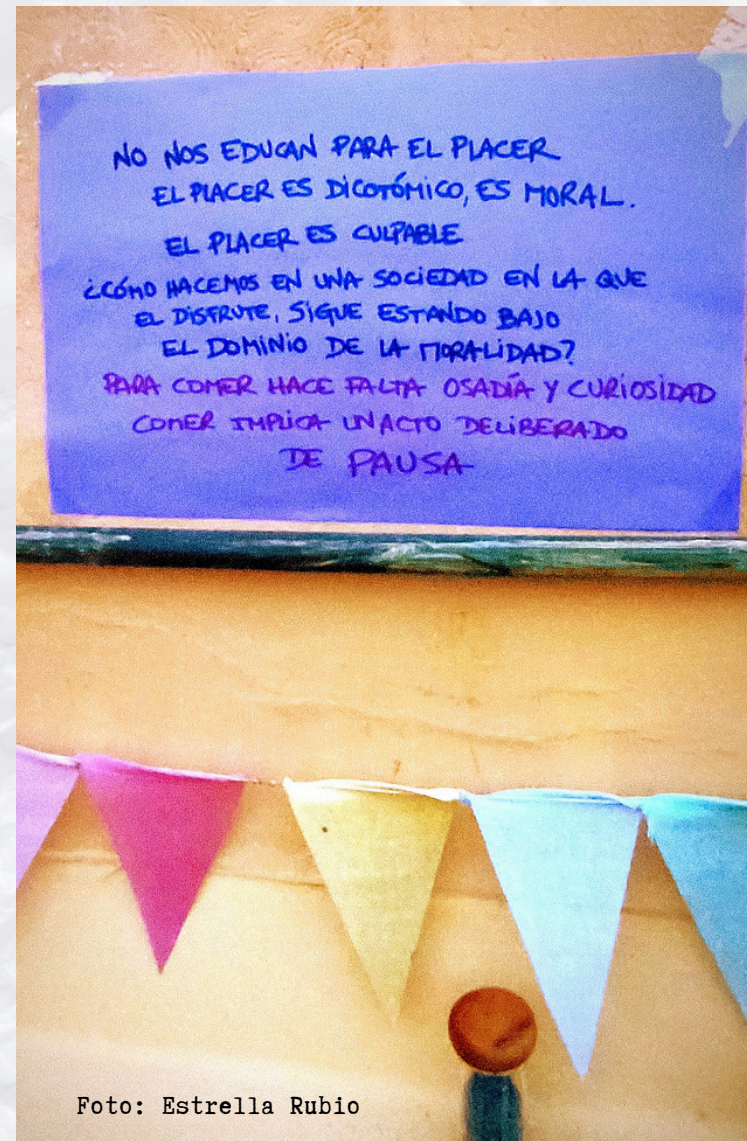 NO NOS EDUCAN PARA EL PLACER
EL PLACER ES DICOTÓMICO, ES MORAL.
EL PLACER ES CULPABLE
¿CÓMO HACEMOS EN UNA SOCIEDAD EN LA QUE
EL DISFRUTE, SIGUE ESTANDO BAJO
EL DOMINIO DE LA MORALIDAD?
PARA COMER HACE FALTA OSADÍA Y CURIOSIDAD
COMER IMPLICA UN ACTO DELIBERADO
DE PAUSA
Foto: Estrella Rubio